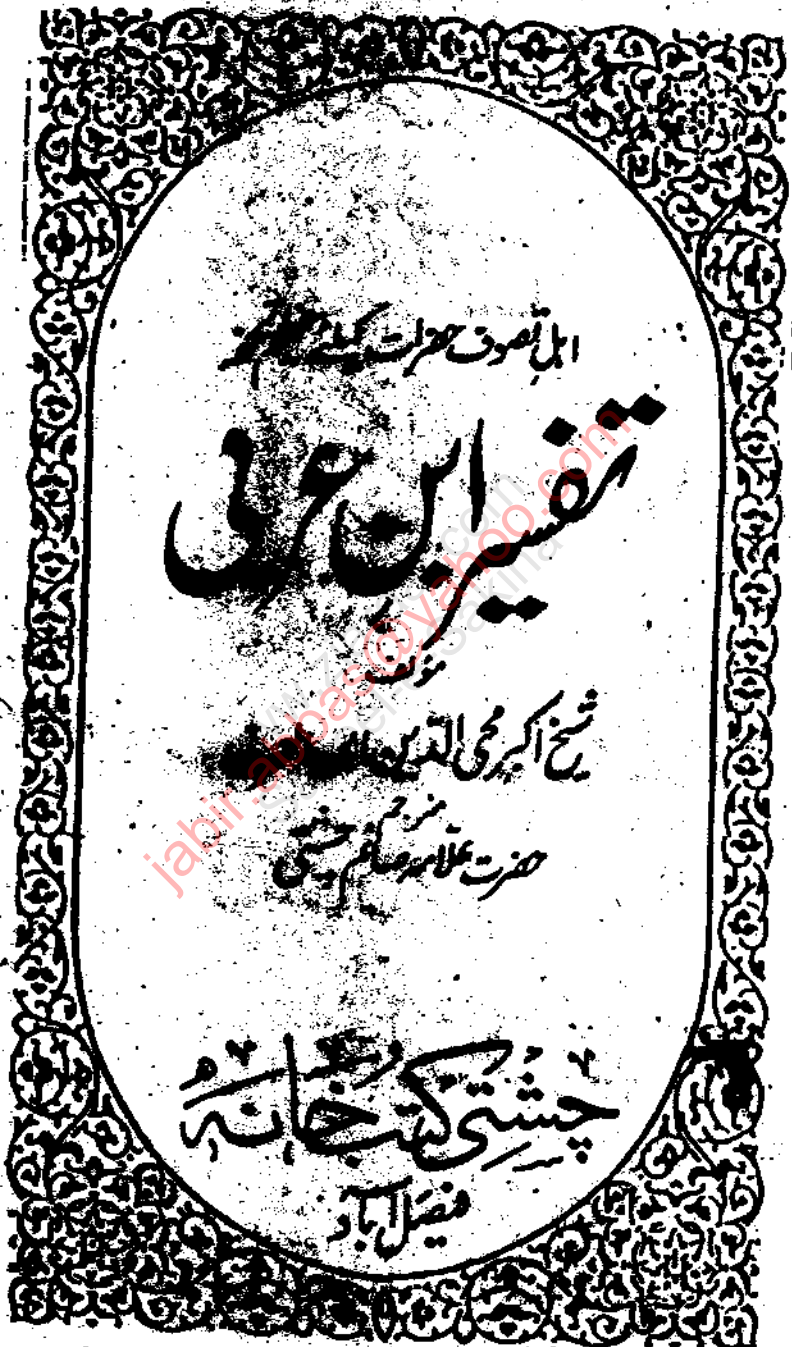 اہلِ تصوف حضرات کیلئے
تفسیر ابن عربی
مؤلف
شیخ اکبر محی الدین ابن
مترجم
حضرت علامہ صائم چشتی
چشتی کتب خانہ
فیصل آباد
jabir.abbas@yahoo.com